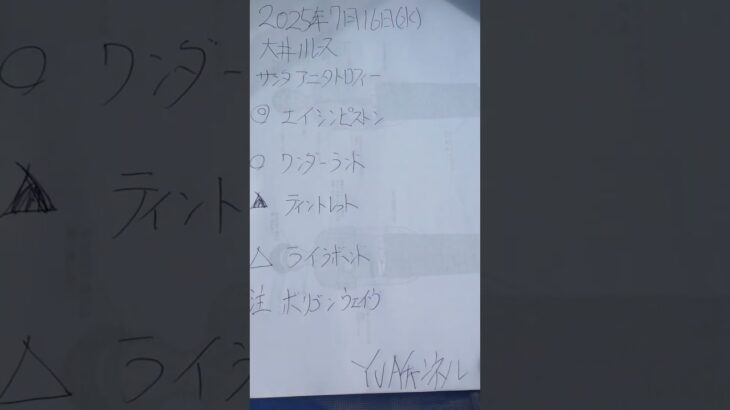 2025年7月16日(水)
大井11レース
サンタアニタトロフィー
◎ エイシンピストン
○ ワンダーランド
▲ ティントレット
△ ライラボンド
注 ポリゴンウェイヴ
YUAチャンネル